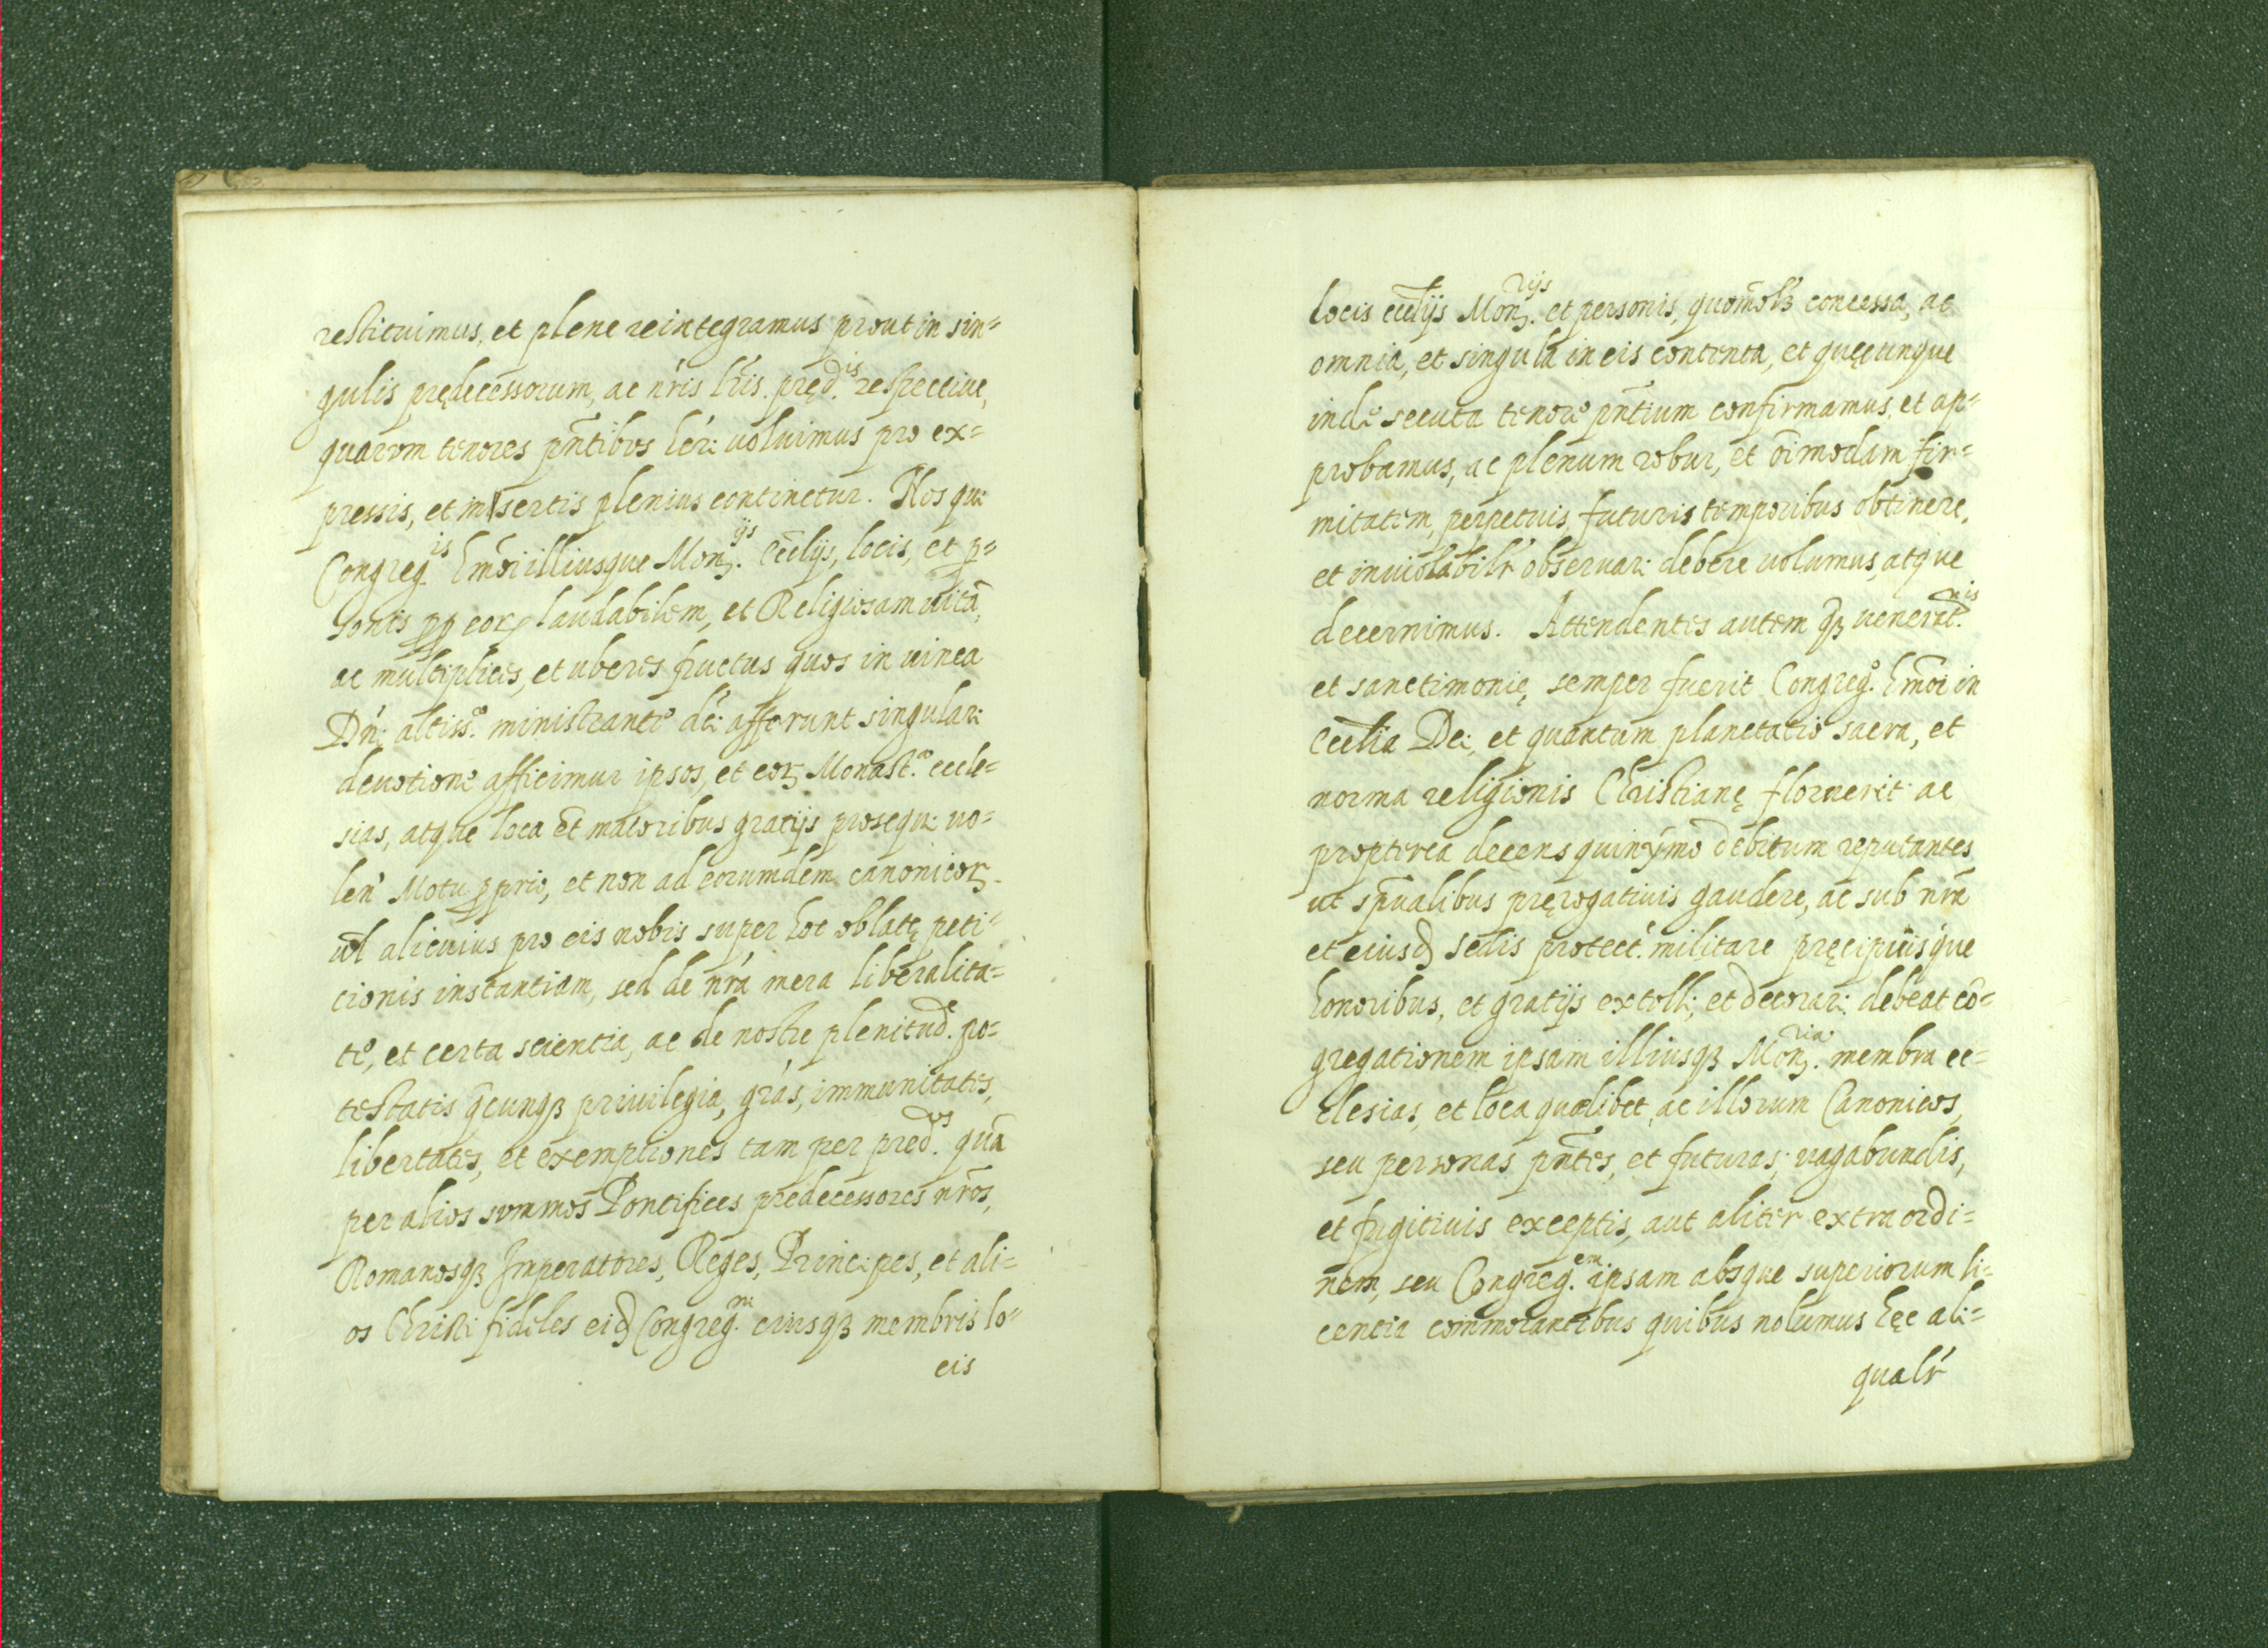 restituimus, et plene reintegramus prout in sin=
gulis pręđecessorum, ac nr̃is lr̃is pręd.is respective,
quarum tenores pñtibus hér: voluimus pro ex=
pressis, et insertis plenius continetur. Nos qui
Congreg.is hmõi illiusque Mon.ijs Ecclijs, locis, et p=
sonis pp eorꝝ laudabilem, et Religiosam uitã,
ac multiplices, et uberes fructus quos in uinea
Dn̄i altiss.o ministrante dei afferunt singulari
deuotione afficimur ipsos, et eorꝝ Monast.a eccle=
sias, atque loca et̃ maioribus gratijs prosequi uo=
len' Motu ꝓprio, et non ad eorumdem canonicorꝝ
uel alicuius pro eis nobis super hoc oblatę peti=
cionis instantiam, sed de nr̃a mera liberalita=
te, et certa scientia, ac de nostre plenitud.e po=
testatis q̃cunqȝ priuilegia, grãs, immunitates,
libertates, et exemptiones tam per pred.os quã
per alios summos Pontifices predecessores nr̃os,
Romanosqȝ Imperatores, Reges, Principes, et ali=
os Christi fideles eid Congreg.ni eiusqȝ membris lo=
cis
locis eccl̃ijs Mon.rijs et personis, quomõlȝ concessa, ac
omnia, et singula in eis contenta, et quęcunque
inde secuta tenore pñtium confirmamus, et ap=
probamus, ac plenum robur, et õimodam fir=
mitatem, perpetuis futuris temporibus obtinere,
et inuiolabilr̃ obseruari debere uolumus, atque
decernimus. Attendentes autem qȝ venerat.nis
et sanctimonię semper fuerit Congreg.o hmõi in
Eccl̃ia Dei, et quantum planctatio sacra, et
norma religionis Christianę floruerit ac
propterea decens quinýmo debitum reputantes
ut sp̃ualibus pręrogatiuis gaudere, ac sub nr̃a
et eiusd sedis protect. militare pręcipuisque
honoribus, et gratijs extolli, et decorari debeat cõ=
gregationem ipsam illiusqȝ Mon.ria membra ec=
clesias, et loca quælibet, ac illorum Canonicos,
seu personas pñtes, et futuras, vagabundis,
et fugitiuis exceptis, aut aliter extra ordi=
nem, seu Congreg.em ipsam absque superiorum li=
centia commorantibus quibus nolumus hęc ali=
qualr̃